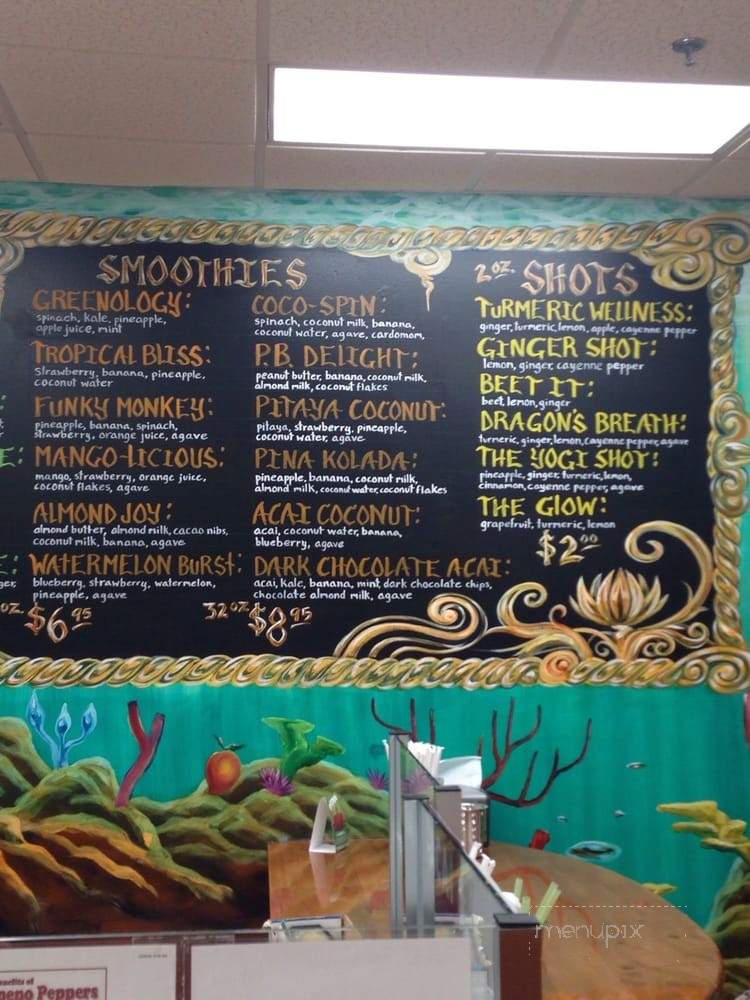 SMOOTHIES
GREENOLOGY:
spinach, kale, pineapple,
apple juice, mint
TROPICAL BLISS:
Strawberry, banana, pineapple,
coconut water
FUNKY MONKEY:
pineapple, banana, spinach,
strawberry, orange juice, agave
MANGO-LICIOUS:
mango, strawberry, orange juice,
coconut flakes, agave
ALMOND JOY:
almond butter, almond milk, cacao nibs,
coconut milk, banana, agave
WATERMELON BURSt:
blueberry, strawberry, watermelon,
pineapple, agave
OZ $6.95
COCO-SPIN:
spinach, coconut milk, banana,
coconut water, agave, cardomom,
P.B. DELIGHT:
peanut butter, banana, coconut milk,
almond milk, coconut flakes
PITAYA COCONUT:
pitaya, strawberry, pineapple,
coconut water, agave
PINA KOLADA:
pineapple, banana, coconut milk,
almond milk, coconut water, coconut flakes
ACAI COCONUT:
acai, coconut water, banana,
blueberry, agave
DARK CHOCOLATE ACAI:
acai, kale, banana, mint, dark chocolate chips,
chocolate almond milk, agave
32 OZ $8.95
2 OZ. SHOTS
TURMERIC WELLNESS:
ginger, turmeric, lemon, apple, cayenne pepper
GINGER SHOT:
lemon, ginger, cayenne pepper
BEET IT:
beet, lemon, ginger
DRAGON'S BREATH:
turmeric, ginger, lemon, cayenne pepper, agave
THE YOGI SHOT:
pineapple, ginger, turmeric, lemon,
cinnamon, cayenne pepper, agave
THE GLOW:
grapefruit, turmeric, lemon
$2.00
menupix
Peppers